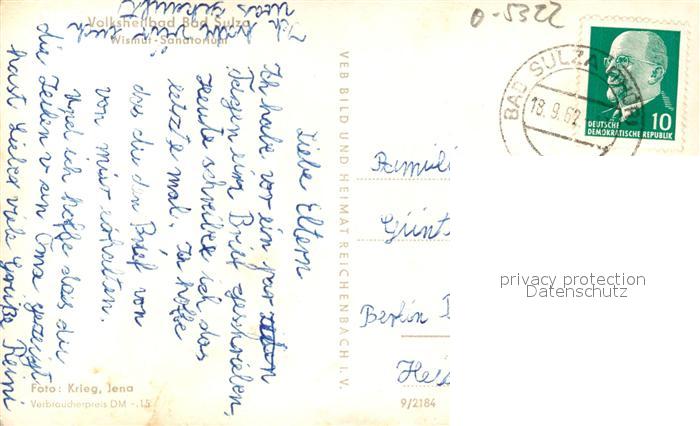 Volksheilbad Bad Sulza
Wismut-Sanatorium
Liebe Eltern
Ich habe vor ein par
Tagen ein Brief geschrieben,
Heute schreibe ich das
letzte mal. Ich hoffe
das du den Brief von
von mir erhalten.
Und ich hoffe das du
die Zeilen von Oma gezeigt
hast Lieber viele Grüße Reini
Ich
Foto: Krieg, Jena
Verbraucherpreis DM -.15
VEB BILD UND HEIMAT REICHENBACH I. V.
9/2184
0-5322
BAD SULZA
18.9.62
DEUTSCHE
DEMOKRATISCHE REPUBLIK
10
Famili
Günt
Berlin
privacy protection
Datenschutz